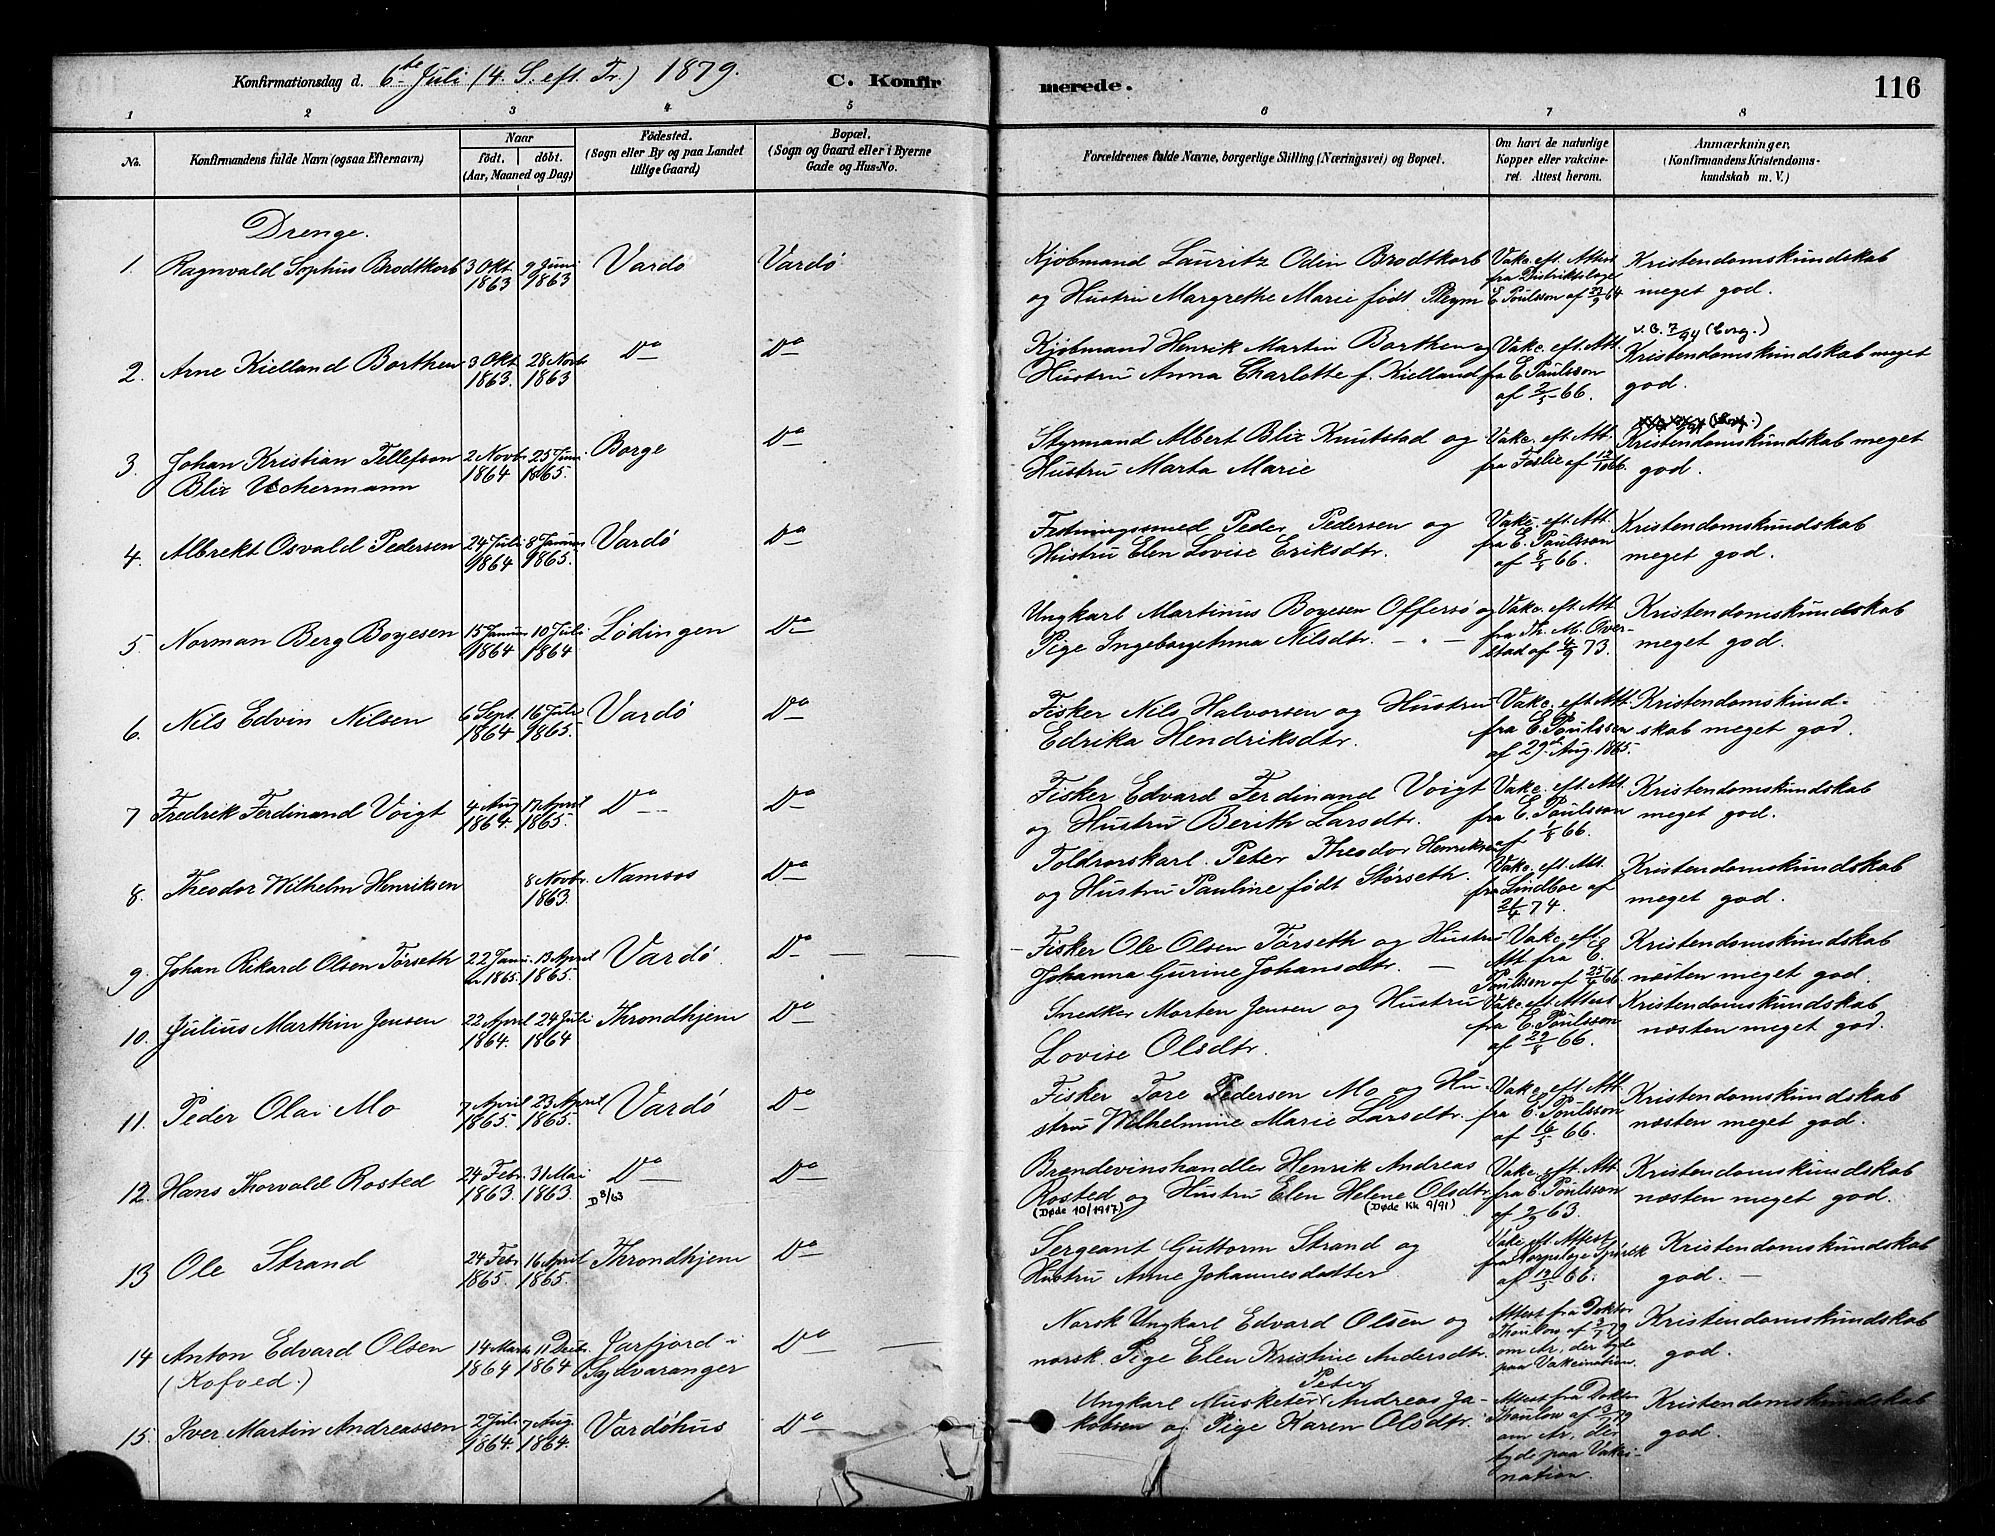 Konfirmationsdag d. 6te Juli (4. S. eft. Tr.) 1879.
C. Konfirmerede.
116
1 2 3 4 5 6 7 8
No. Konfirmandens fulde Navn (ogsaa Efternavn) Naar født. døbt. (Aar, Maaned og Dag) Fødested. (Sogn eller By og paa Landet tillige Gaard) Bopæl. (Sogn og Gaard eller i Byerne Gade og Hus-No. Forældrenes fulde Navne, borgerlige Stilling (Næringsvei) og Bopæl. Om havt de naturlige Kopper eller vakcineret. Attest herom. Anmærkninger, (Konfirmandens Kristendomskundskab m. V.)
Drenge.
1. Ragnvald Sophus Brodtkorb 3 Okt. 1863 9 Juni 1863 Vardø Vardø
Kjøbmand Lauritz Odin Brodtkorb
og Hustru Margrethe Marie født Pleym
Vakc. eft. Attest
fra Distriktslæge
E. Poulsson af 22/9 64
Kristendomskundskab
meget god.
2. Arne Kielland Borthen 3 Okt. 1863. 28 Novbr 1863 Do Do
Kjøbmand Henrik Martin Borthen og
Hustru Anna Charlotte f. Kielland
Vakc. eft. Att.
fra E. Paulsson
af 2/5 66.
v. G. 7/94 (Borg.)
Kristendomskundskab meget
god.
3. Johan Kristian Tellefson
Blix Uchermann
2 Novbr 1864 25 Juni 1865. Borge Do
Styrmand Albert Blix Knutstad og
Hustru Marta Marie
Vakc. eft. Att.
fra Foslie af 12/10 66.
(Borg.)
Kristendomskundskab meget
god.
4. Albrekt Osvald Pedersen 24 Juli 1864 8 Januar 1865. Vardø Do
Festningssmed Peder Pedersen og
Hustru Elen Lovise Eriksdtr.
Vakc. eft. Att.
fra E. Paulsson
af 8/8 66.
Kristendomskundskab
meget god.
5. Norman Berg Boyesen 15 Januar 1864 10 Juli 1864 Lødingen Do
Ungkarl Martinus Boyesen Offersø og
Pige Ingeborg Anna Nilsdtr. - " -
Vakc. eft. Att.
fra Th. M. Over-
stad af 4/9 73.
Kristendomskundskab
meget god.
6. Nils Edvin Nilsen 6 Sept. 1864 16 Juli 1865. Vardø Do
Fisker Nils Halvorsen og Hustru
Edrika Hendriksdtr.
Vakc. eft. Att.
fra E. Poulsson
af 29de Aug. 1865.
Kristendomskund-
skab meget god.
7 Fredrik Ferdinand Voigt 4 Aug 1864. 17 April 1865. Do Do
Fisker Edvard Ferdinand Voigt
og Hustru Berith Larsdtr.
Vakc. eft. Att.
fra E. Poulsson
af 1/8 66.
Kristendomskundskab
meget god.
8. Theodor Wilhelm Henriksen 8 Novbr. 1863. Namsos Do
Toldrorskarl Peter Theodor Henriksen
og Hustru Pauline født Størseth.
Vakc. eft. Att.
fra Lindboe af
21/4 74.
Kristendomskundskab
meget god.
9. Johan Rikard Olsen Tørseth 22 Janu- ar 1865. 13 April 1865. Vardø. Do
Fisker Ole Olsen Tørseth og Hustru
Johanna Gurine Johansdtr.
Vakc. eft.
Att fra E.
Poulsson af 25/4 66.
Kristendomskundskab
næsten meget god.
10. Julius Marthin Jensen 22 April 1864. 24 Juli 1864 Throndhjem Do
Snedker Morten Jensen og Hustru
Lovise Olsdtr.
Vakc. eft. Attest
fra E. Poulsson
af 22/8 66.
Kristendomskundskab
næsten meget god.
11. Peder Olai Mo 7 April 1865. 23 April 1865. Vardø Do
Fisker Tore Pedersen Mo og Hu-
stru Wilhelmine Marie Larsdtr.
Vakc. eft. Att.
fra E. Poulsson
af 16/5 66.
Kristendomskundskab
næsten meget god.
12. Hans Thorvald Rosted 24 Febr 1863 31 Mai 1863. Do Do
D 8/63
Brændevinshandler Henrik Andreas
Rosted og Hustru Elen Helene Olsdtr.
(Døde 10/1917) (Døde Kk 9/91)
Vakc. eft. Att
fra E. Poulsson
af 2/9 63.
Kristendomskundskab
næsten meget god.
13 Ole Strand 24 Febr 1865. 16 April 1865. Throndhjem Do
Sergeant Guttorm Strand og
Hustru Anne Johannesdatter
Vakc. eft. Attest
fra Korpslæge
af 19/5 66.
Kristendomskundskab
god.
14 Anton Edvard Olsen
(Kofved.)
14 Marts 1864 11 Decbr. 1864 Jarfjord i
Sydvaranger Do
Norsk Ungkarl Edvard Olsen og
norsk Pige Elen Kristine Andersdtr.
Attest fra Doktor
Thoulow af 3/7 79
om Ar, der tyde
paa Vakcination.
Kristendomskundskab
god.
15. Iver Martin Andreassen 2 Juli 1864. 7 Aug. 1864. Vardøhus Do
Ungkarl Musketer Peter Andreas Ja-
kobsen og Pige Karen Olsdtr.
Attest fra Doktor
Thoulow af 3/7 79
om Ar, der
tyde paa Vakci-
nation.
Kristendomskundskab
god.